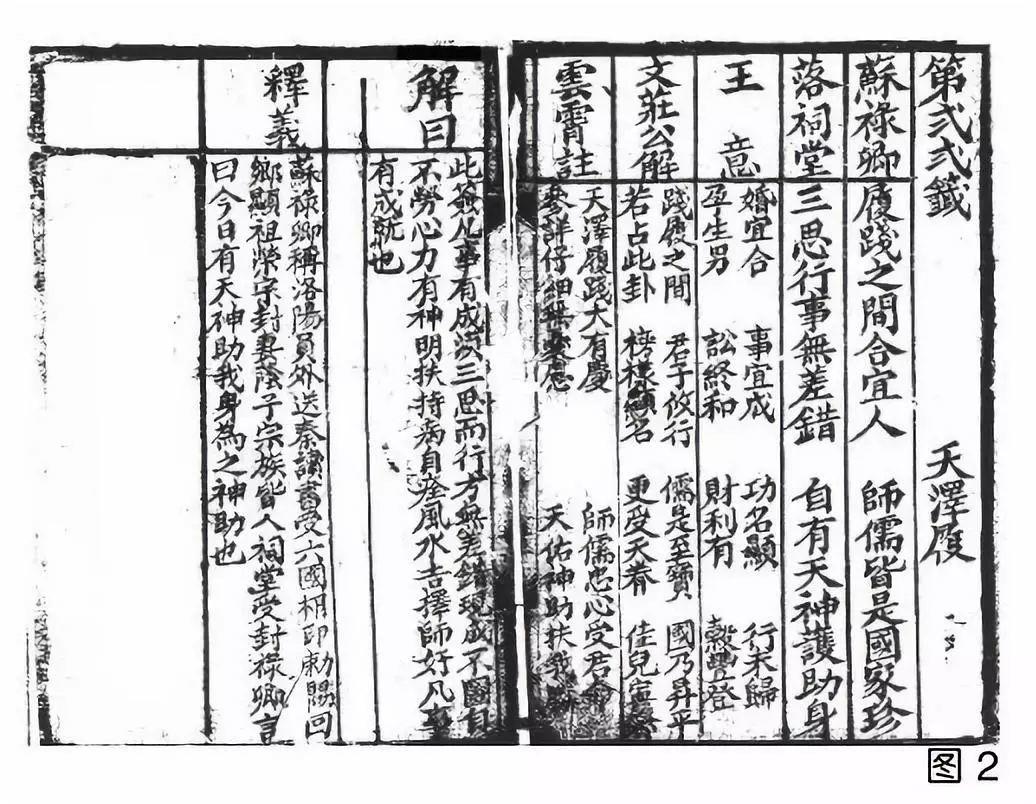 第弍弍籤 天澤履
蘇祿卿 履踐之間合宜人 師儒皆是國家珍
落祠堂 三思行事無差錯 自有天神護助身
王意
婚宜合 事宜成 功名顯 行未歸
孕生男 訟終和 財利有 熬豐登
文莊公解
踐履之間 君子攸行 儒是至寶 國乃昇平
若占此卦 榜樣顯名 更受天眷 佳兒
雲霄註
天澤履踐大有慶 師儒忠心受君
參詳仔細無
天佑神助扶
解曰
此簽凡事有成須三思而行方無差錯現成不圖自
不勞心力有神明扶持病自痊風水吉擇師好凡事
有成就也
釋義
蘇祿卿稱洛陽員外送秦讀書受六國相印勅賜回
鄉顯祖榮宗封妻蔭子宗族皆入祠堂受封祿卿言
曰今日有天神助我身為之神助也
图 2